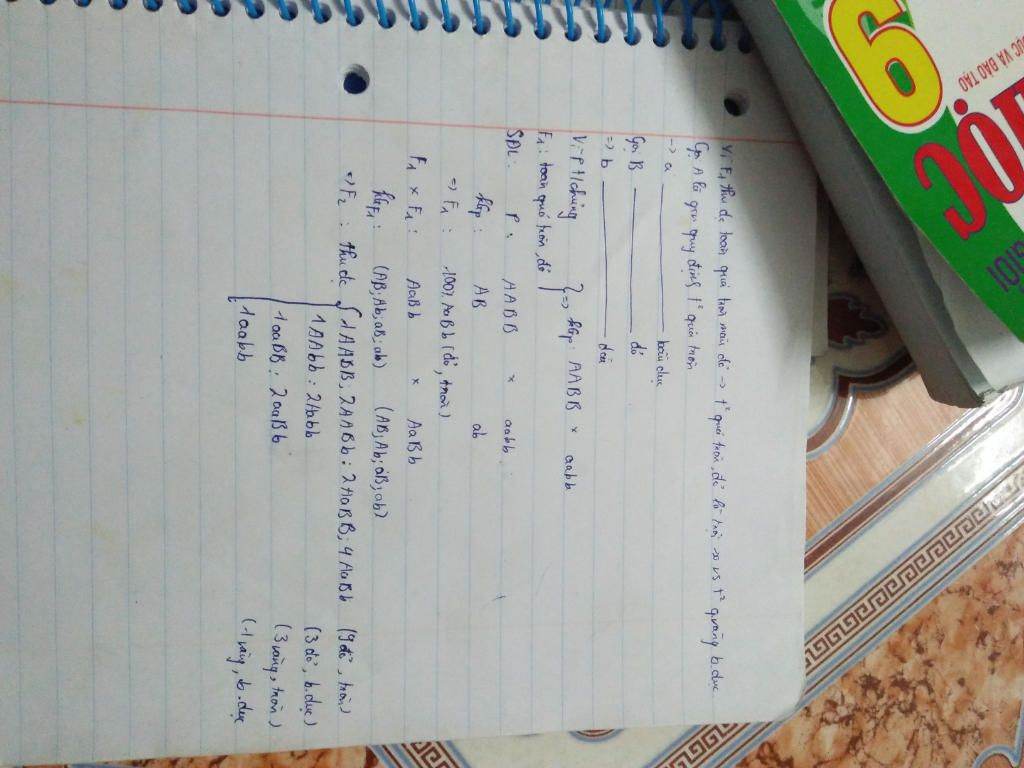 Vì F1 thu đc toàn quả tròn màu đỏ → t² quả tròn, đỏ là trội so vs t² q vàng b.dục
Gọi A là gen quy định t² quả tròn
→ a ——— bầu dục
Gọi B ——— đỏ
=> b ———
Vì P t/chủng
F1: toàn quả tròn, đỏ } => P: AABB × aabb
SĐL: P: AABB × aabb
AB ab
=> F1: 100% AaBb (đỏ, tròn)
F1 × F1: AaBb × AaBb
F1: (AB; Ab; aB; ab) (AB; Ab; aB; ab)
=> F2: thu đc { 1AABB; 2AABb; 2AaBB; 4AaBb (9 đỏ, tròn)
1AAbb : 2Aabb (3 đỏ, b.dục)
1aaBB : 2aaBb (3 vàng, tròn)
1aabb (1 vàng, b.dục)
6
ỌC
ỤC VÀ ĐÀO TẠO
GIỎI